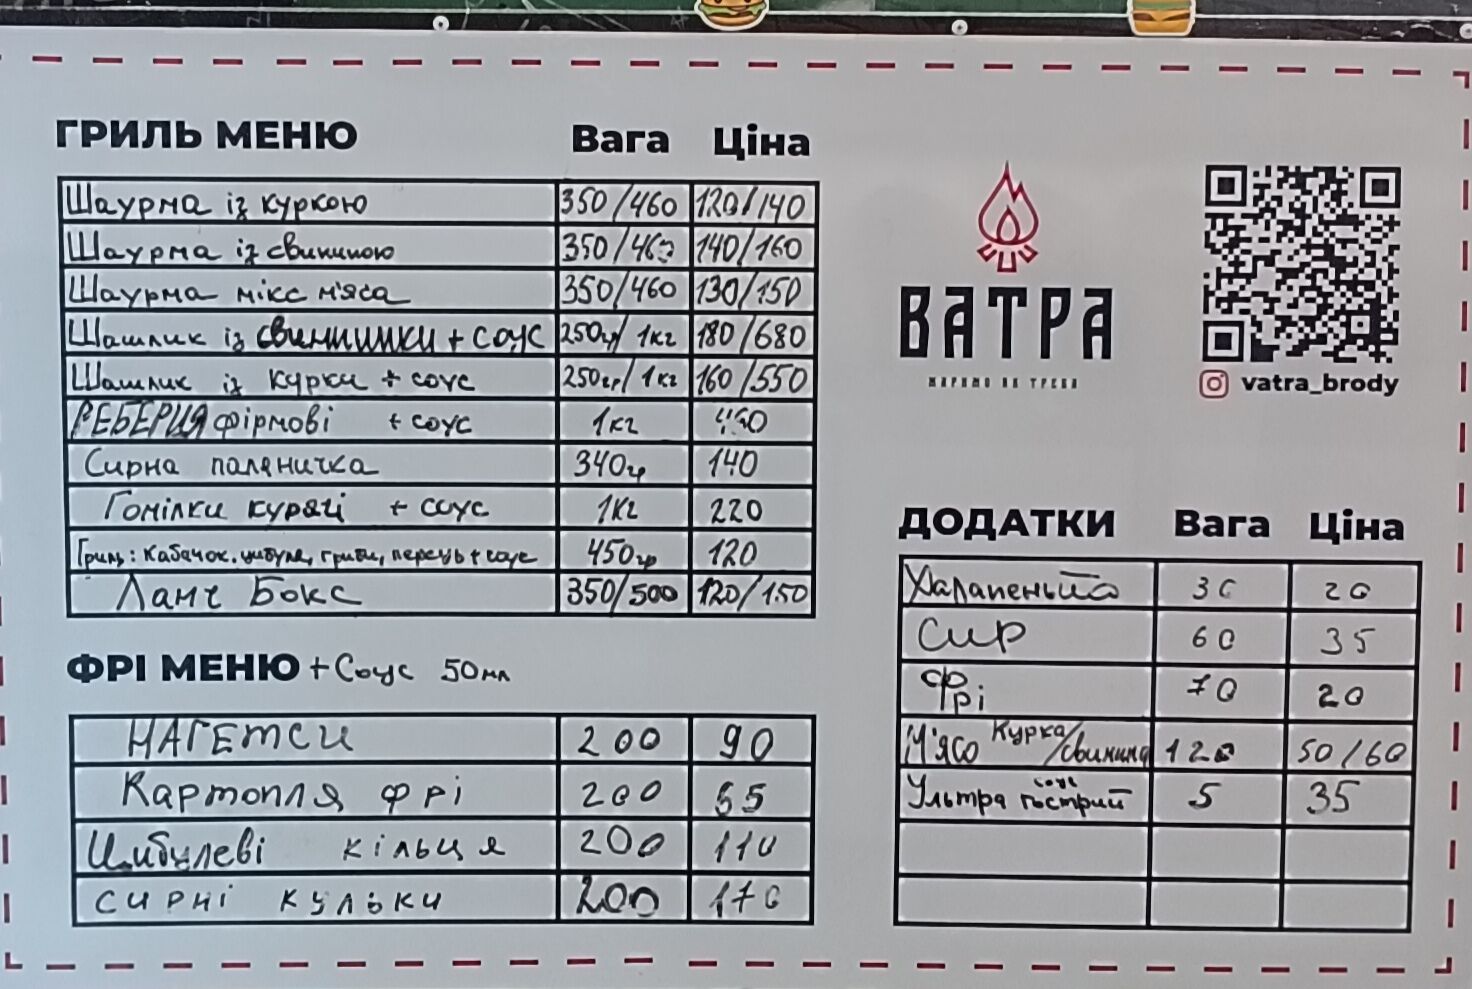 ГРИЛЬ МЕНЮ Вага Ціна
Шаурма із куркою 350/460 120/140
Шаурма із свининою 350/460 140/160
Шаурма мікс м'яса 350/460 130/150
Шашлик із свинишки + соус 250гр/1кг 180/680
Шашлик із курки + соус 250гр/1кг 160/550
РЕБЕРЦЯ фірмові + соус 1кг
Сирна паляничка 340гр 140
Гомілки курячі + соус 1кг 220
Гриль: кабачок, цибуля, гриби, перець + соус 450гр 120
Ланч Бокс 350/500 120/150
ФРІ МЕНЮ + Соус 50мл
НАГЕТСИ 200 90
Картопля фрі 200
Цибулеві кільця 200 110
сирні кульки 200 170
ВАТРА
ЖАРИМО ЯК ТРЕБА
vatra_brody
ДОДАТКИ Вага Ціна
Халапеньйо 30 20
сир 60 35
фрі 70 20
М'ясо Курка/свинина 120 50/60
Ультра гострий соус 5 35